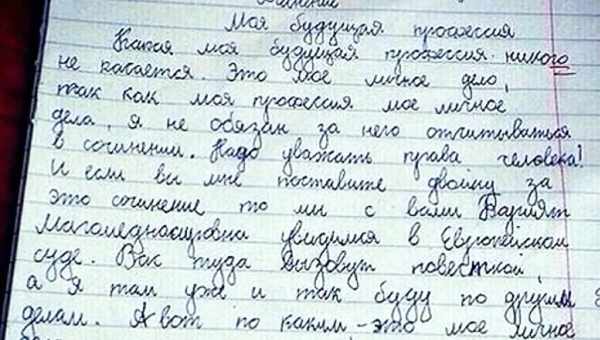 Сочинение
Моя будущая профессия
Какая моя будущая профессия никого
не касается. Это мое личное дело,
так как моя профессия мое личное
дела, я не обязан за него отчитываться
в сочинении. Надо уважать права человека!
И если вы мне поставите двойку за
это сочинение то мы с вами
увидимся в Европейском
суде. Вас туда вызовут повесткой,
а я там уже и так буду по другим
делам. А вот по каким - это мое личное